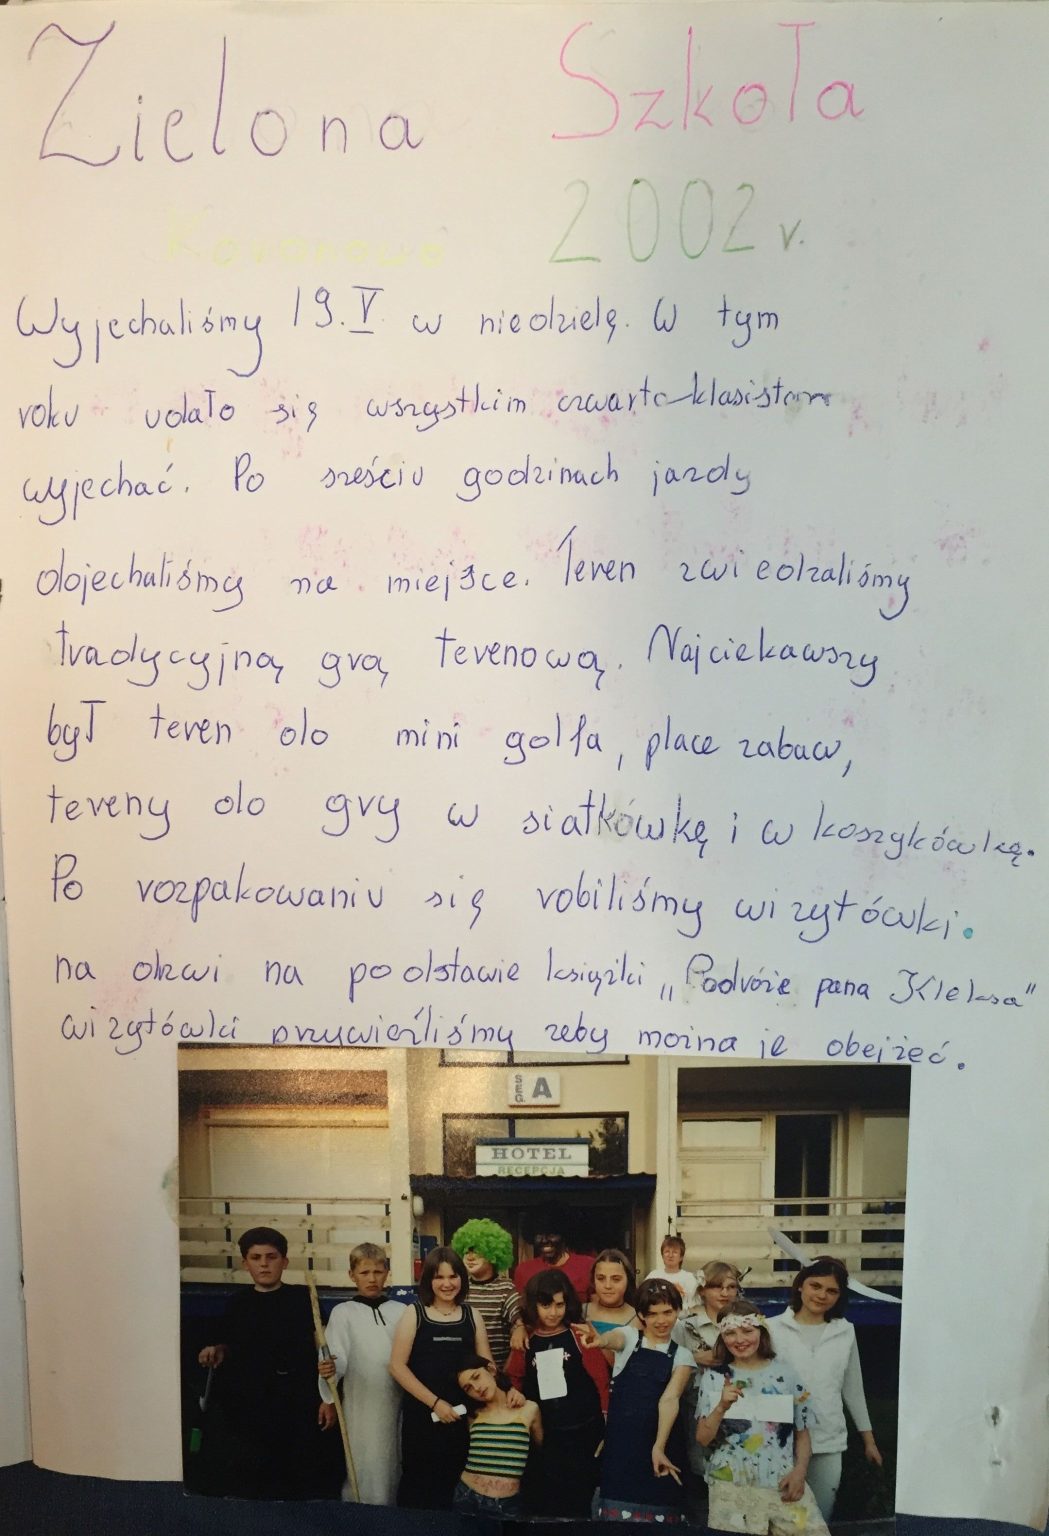 Zielona Szkoła
Koronowo 2002 r.
Wyjechaliśmy 19.V. w niedzielę. W tym
roku udało się wszystkim czwarto-klasistom
wyjechać. Po sześciu godzinach jazdy
dojechaliśmy na miejsce. Teren zwiedzaliśmy
tradycyjną grą terenową. Najciekawszy
był teren do mini golfa, place zabaw,
tereny do gry w siatkówkę i w koszykówkę.
Po rozpakowaniu się robiliśmy wizytówki.
na drzwi na podstawie książki „Podróże pana Kleksa"
wizytówki przywieźliśmy zeby mozna je obejżeć.
SEG. A
HOTEL
RECEPCJA